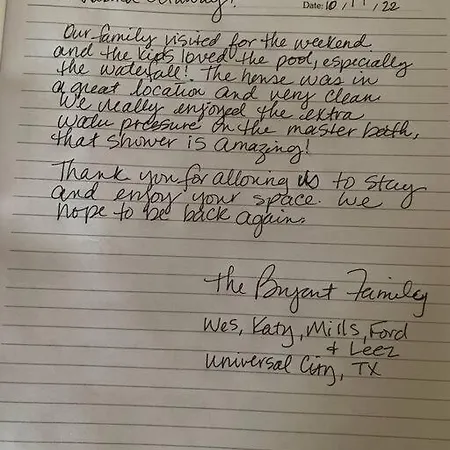 Date: 10/ /22
Our family visited for the weekend
and the kids loved the pool, especially
the waterfall! The house was in
a great location and very clean
We really enjoyed the extra
water pressure on the master bath,
that shower is amazing!
Thank you for allowing us to stay
and enjoy your space. We
hope to be back again.
The Bryant Family
Wes, Katy, Mills, Ford
+ Leez
Universal City, TX